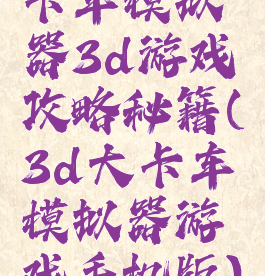 卡车模拟
器3d游戏
攻略秘籍(
3d大卡车
模拟器游
戏手机版)